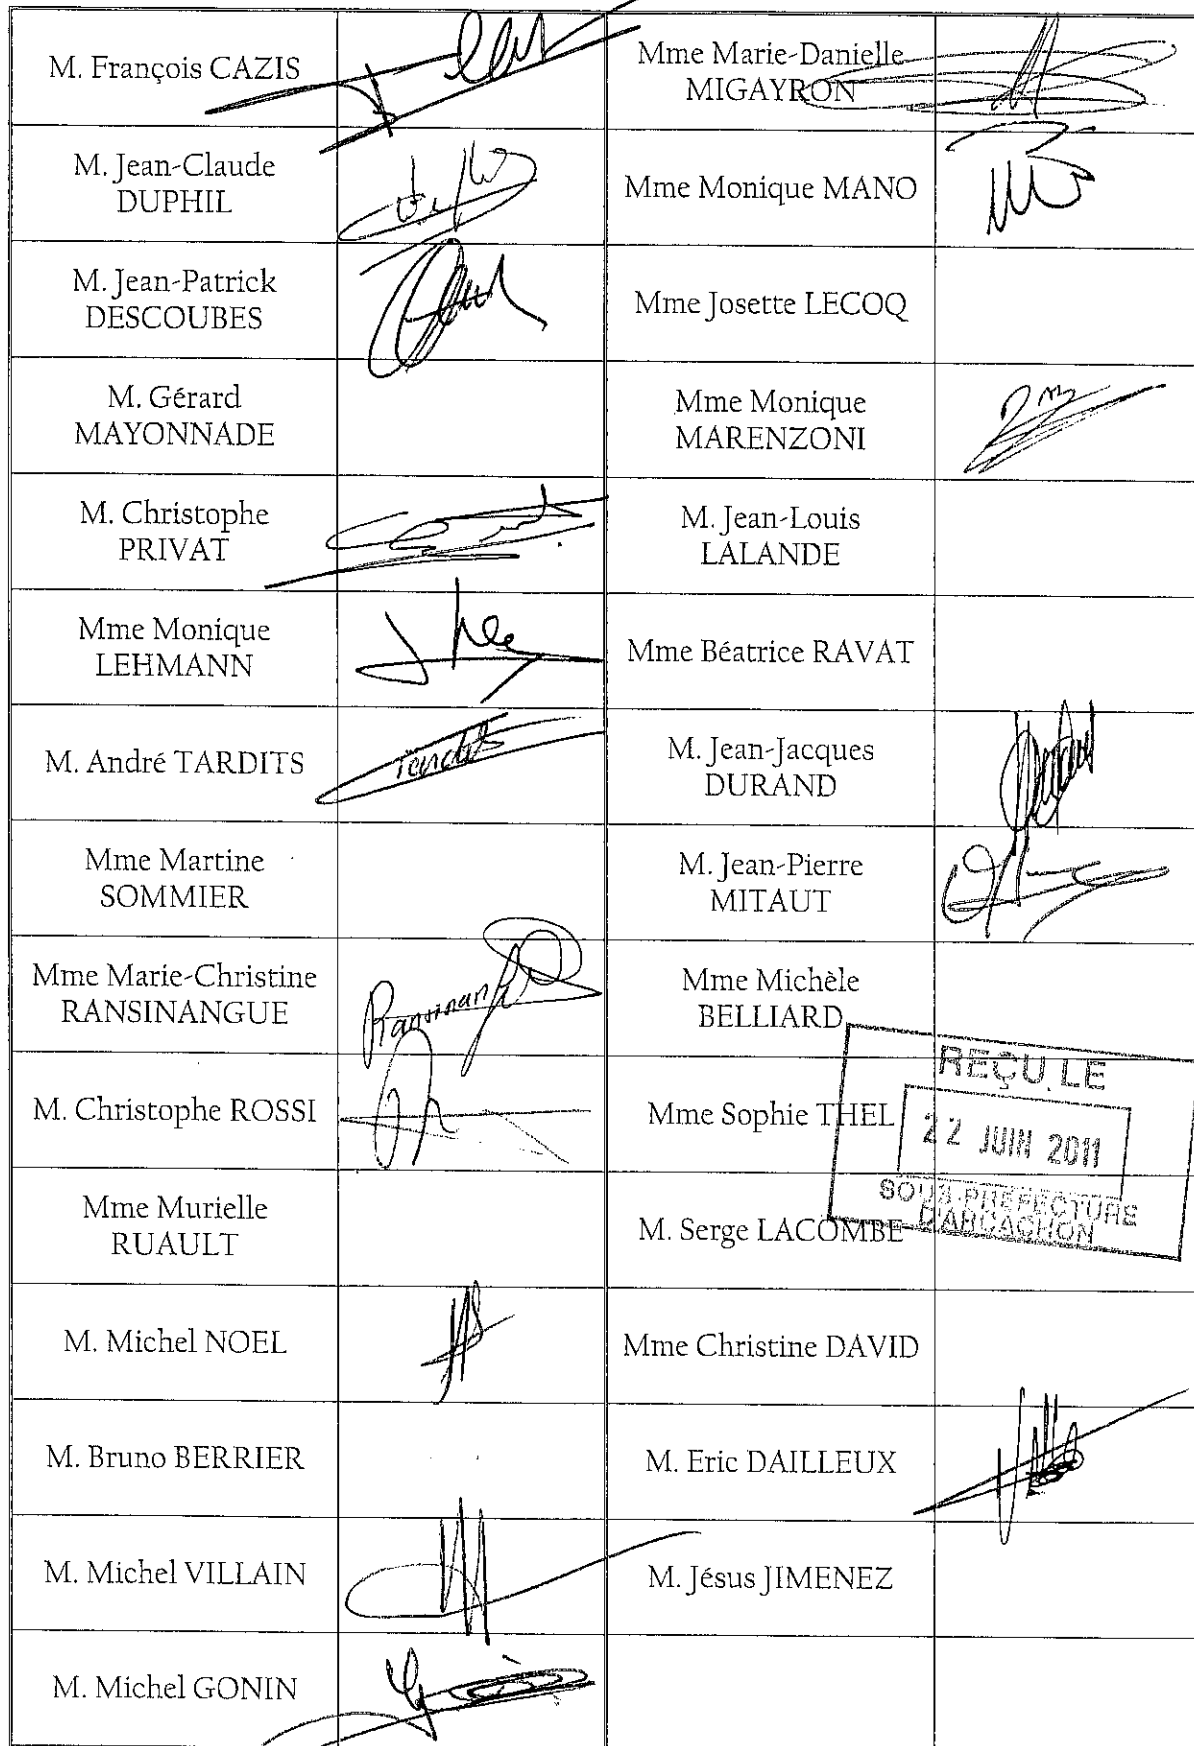 M. François CAZIS
Mme Marie-Danielle
MIGAYRON
M. Jean-Claude
DUPHIL
Mme Monique MANO
M. Jean-Patrick
DESCOUBES
Mme Josette LECOQ
M. Gérard
MAYONNADE
Mme Monique
MARENZONI
M. Christophe
PRIVAT
M. Jean-Louis
LALANDE
Mme Monique
LEHMANN
Mme Béatrice RAVAT
M. André TARDITS
Tardits
M. Jean-Jacques
DURAND
Mme Martine
SOMMIER
M. Jean-Pierre
MITAUT
Mme Marie-Christine
RANSINANGUE
Mme Michèle
BELLIARD
M. Christophe ROSSI
Mme Sophie THEL
REÇU LE
22 JUIN 2011
SOUS-PREFECTURE
D'ARCACHON
Mme Murielle
RUAULT
M. Serge LACOMBE
M. Michel NOEL
Mme Christine DAVID
M. Bruno BERRIER
M. Eric DAILLEUX
M. Michel VILLAIN
M. Jésus JIMENEZ
M. Michel GONIN